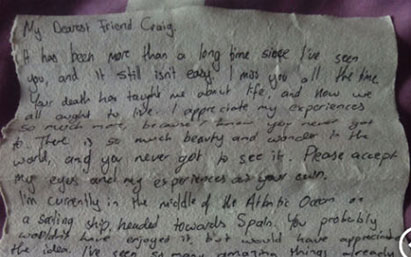 My Dearest Friend Craig,
It has been more than a long time since I've seen
you, and it still isn't easy. I miss you all the time
Your death has taught me about life, and how we
all ought to live. I appreciate my experiences
so much more, because I know you never got
to. There is so much beauty and wonder in the
world, and you never got to see it. Please accept
my eyes and my experiences as your own.
I'm currently in the middle of the Atlantic Ocean on
a sailing ship, headed towards Spain. You probably
wouldn't have enjoyed it, but would have appreciated
the idea. I've seen so many amazing things already